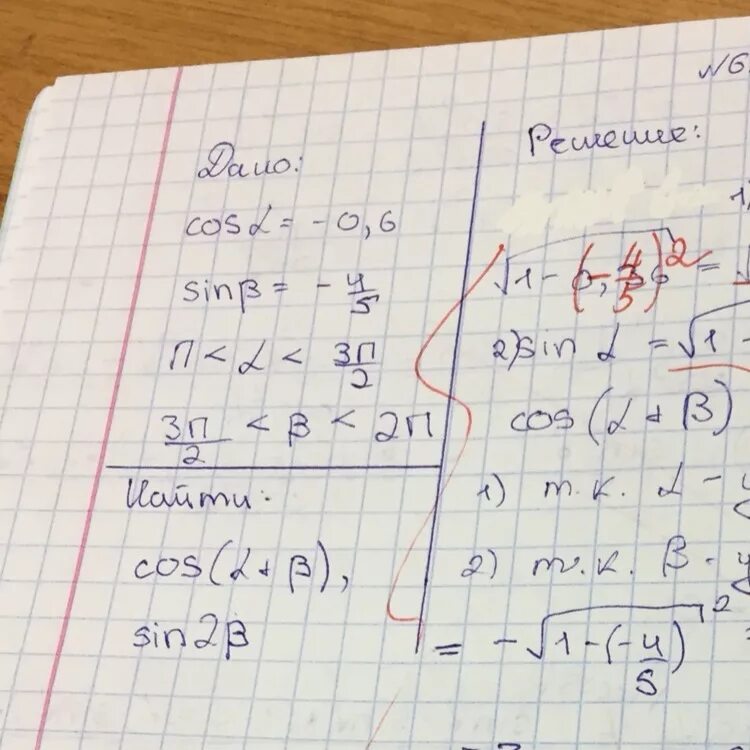 №6
Дано:
cos α = -0,6
sin β = -4/5
П < α < 3П/2
3П/2 < β < 2П
Найти:
cos(α + β),
sin2β
Решение:
1)
√1-(-4/5)² = √
2) sin α = √1 -
cos(α + β)
1) т.к. α -
2) т.к. β -
= -√1-(-4/5)²